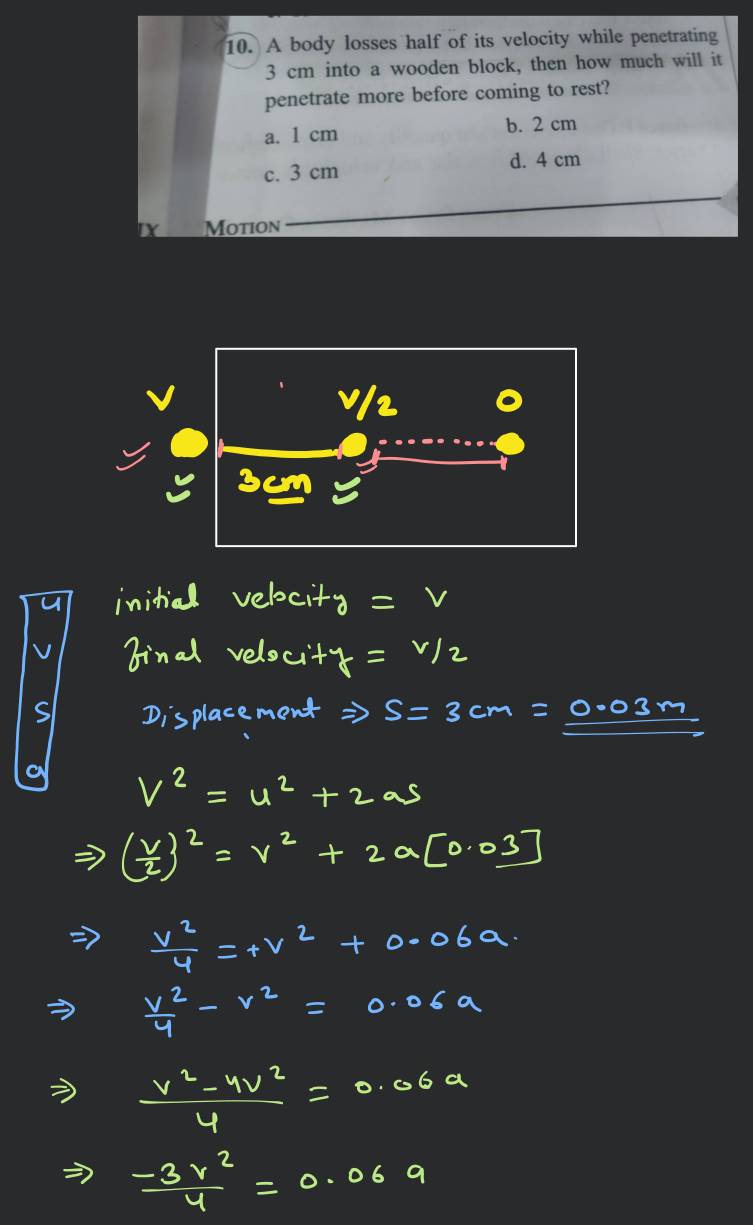 10. A body losses half of its velocity while penetrating
3 cm into a wooden block, then how much will it
penetrate more before coming to rest?
a. 1 cm
b. 2 cm
c. 3 cm
d. 4 cm
IX MOTION
V
V/2
0
3cm
u
v
s
a
initial velocity = v
final velocity = v/2
Displacement ⇒ S = 3 cm = 0.03m
V² = u² + 2as
⇒ (v/2)² = v² + 2a[0.03]
⇒ v²/4 = +v² + 0.06a.
⇒ v²/4 - v² = 0.06a
⇒ v²-4v²/4 = 0.06a
⇒ -3v²/4 = 0.06a